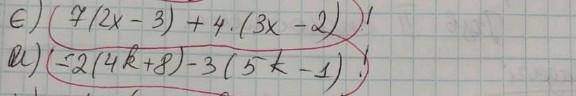 є) 7(2x - 3) + 4 · (3x - 2) !
и) -2(4k+8) - 3(5k - 1) !